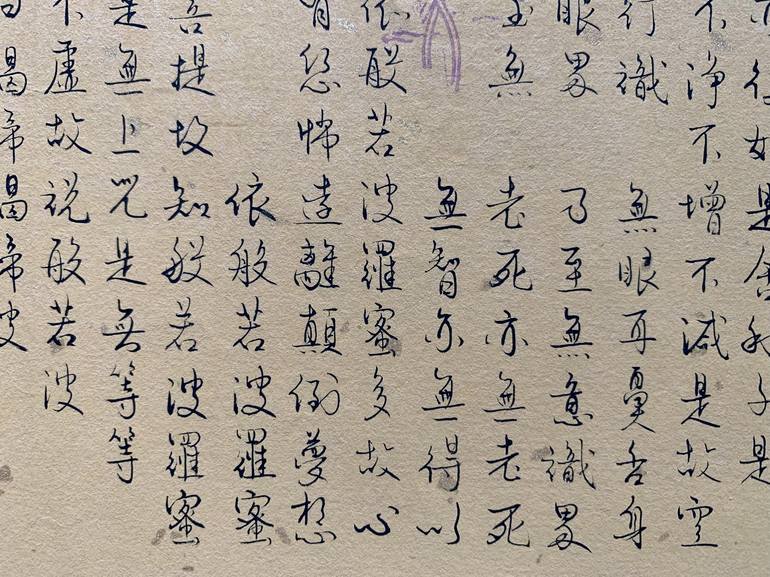 亦復如是舍利子是
不淨不增不減是故空
行識 無眼耳鼻舌身
眼界 乃至無意識界
至無 老死亦無老死
無智亦無得以
依般若波羅蜜多故心
有恐怖遠離顛倒夢想
依般若波羅蜜
菩提故知般若波羅蜜
是無上咒是無等等
不虛故說般若波
曰揭諦揭諦波